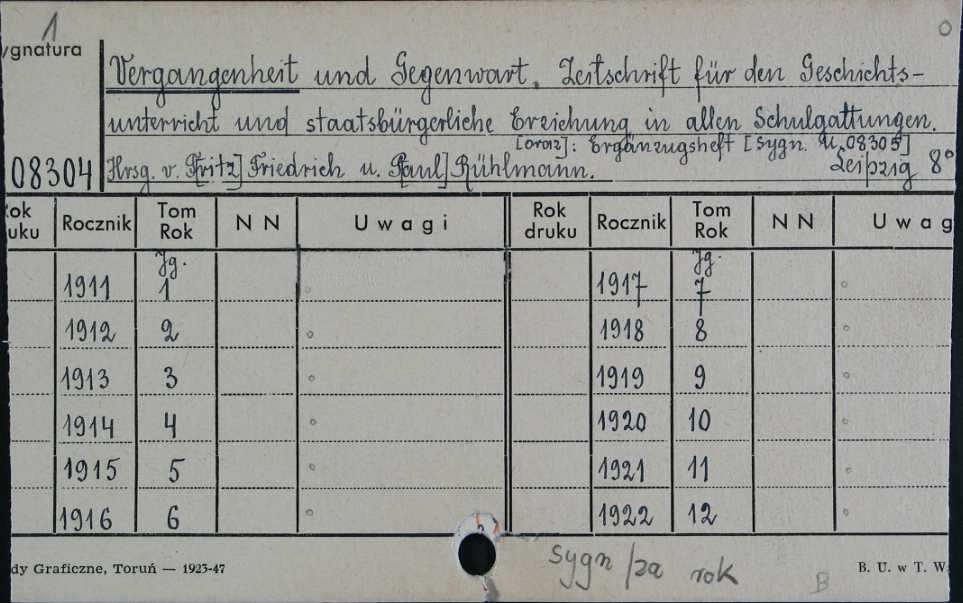 1
ygnatura
Vergangenheit und Gegenwart. Zeitschrift für den Geschichts-
unterricht und staatsbürgerliche Erziehung in allen Schulgattungen.
[oraz]: Ergänzugsheft [sygn. U, 08305]
08304 Hrsg. v. F[ritz] Friedrich u. P[aul] Rühlmann. Leipzig 8°
Rok druku Rocznik Tom Rok N N Uwagi Rok druku Rocznik Tom Rok N N Uwag
Jg. Jg.
1911 1 1917 7
1912 2 1918 8
1913 3 1919 9
1914 4 1920 10
1915 5 1921 11
1916 6 1922 12
dy Graficzne, Toruń — 1923-47 sygn /za rok B B. U. w T. W